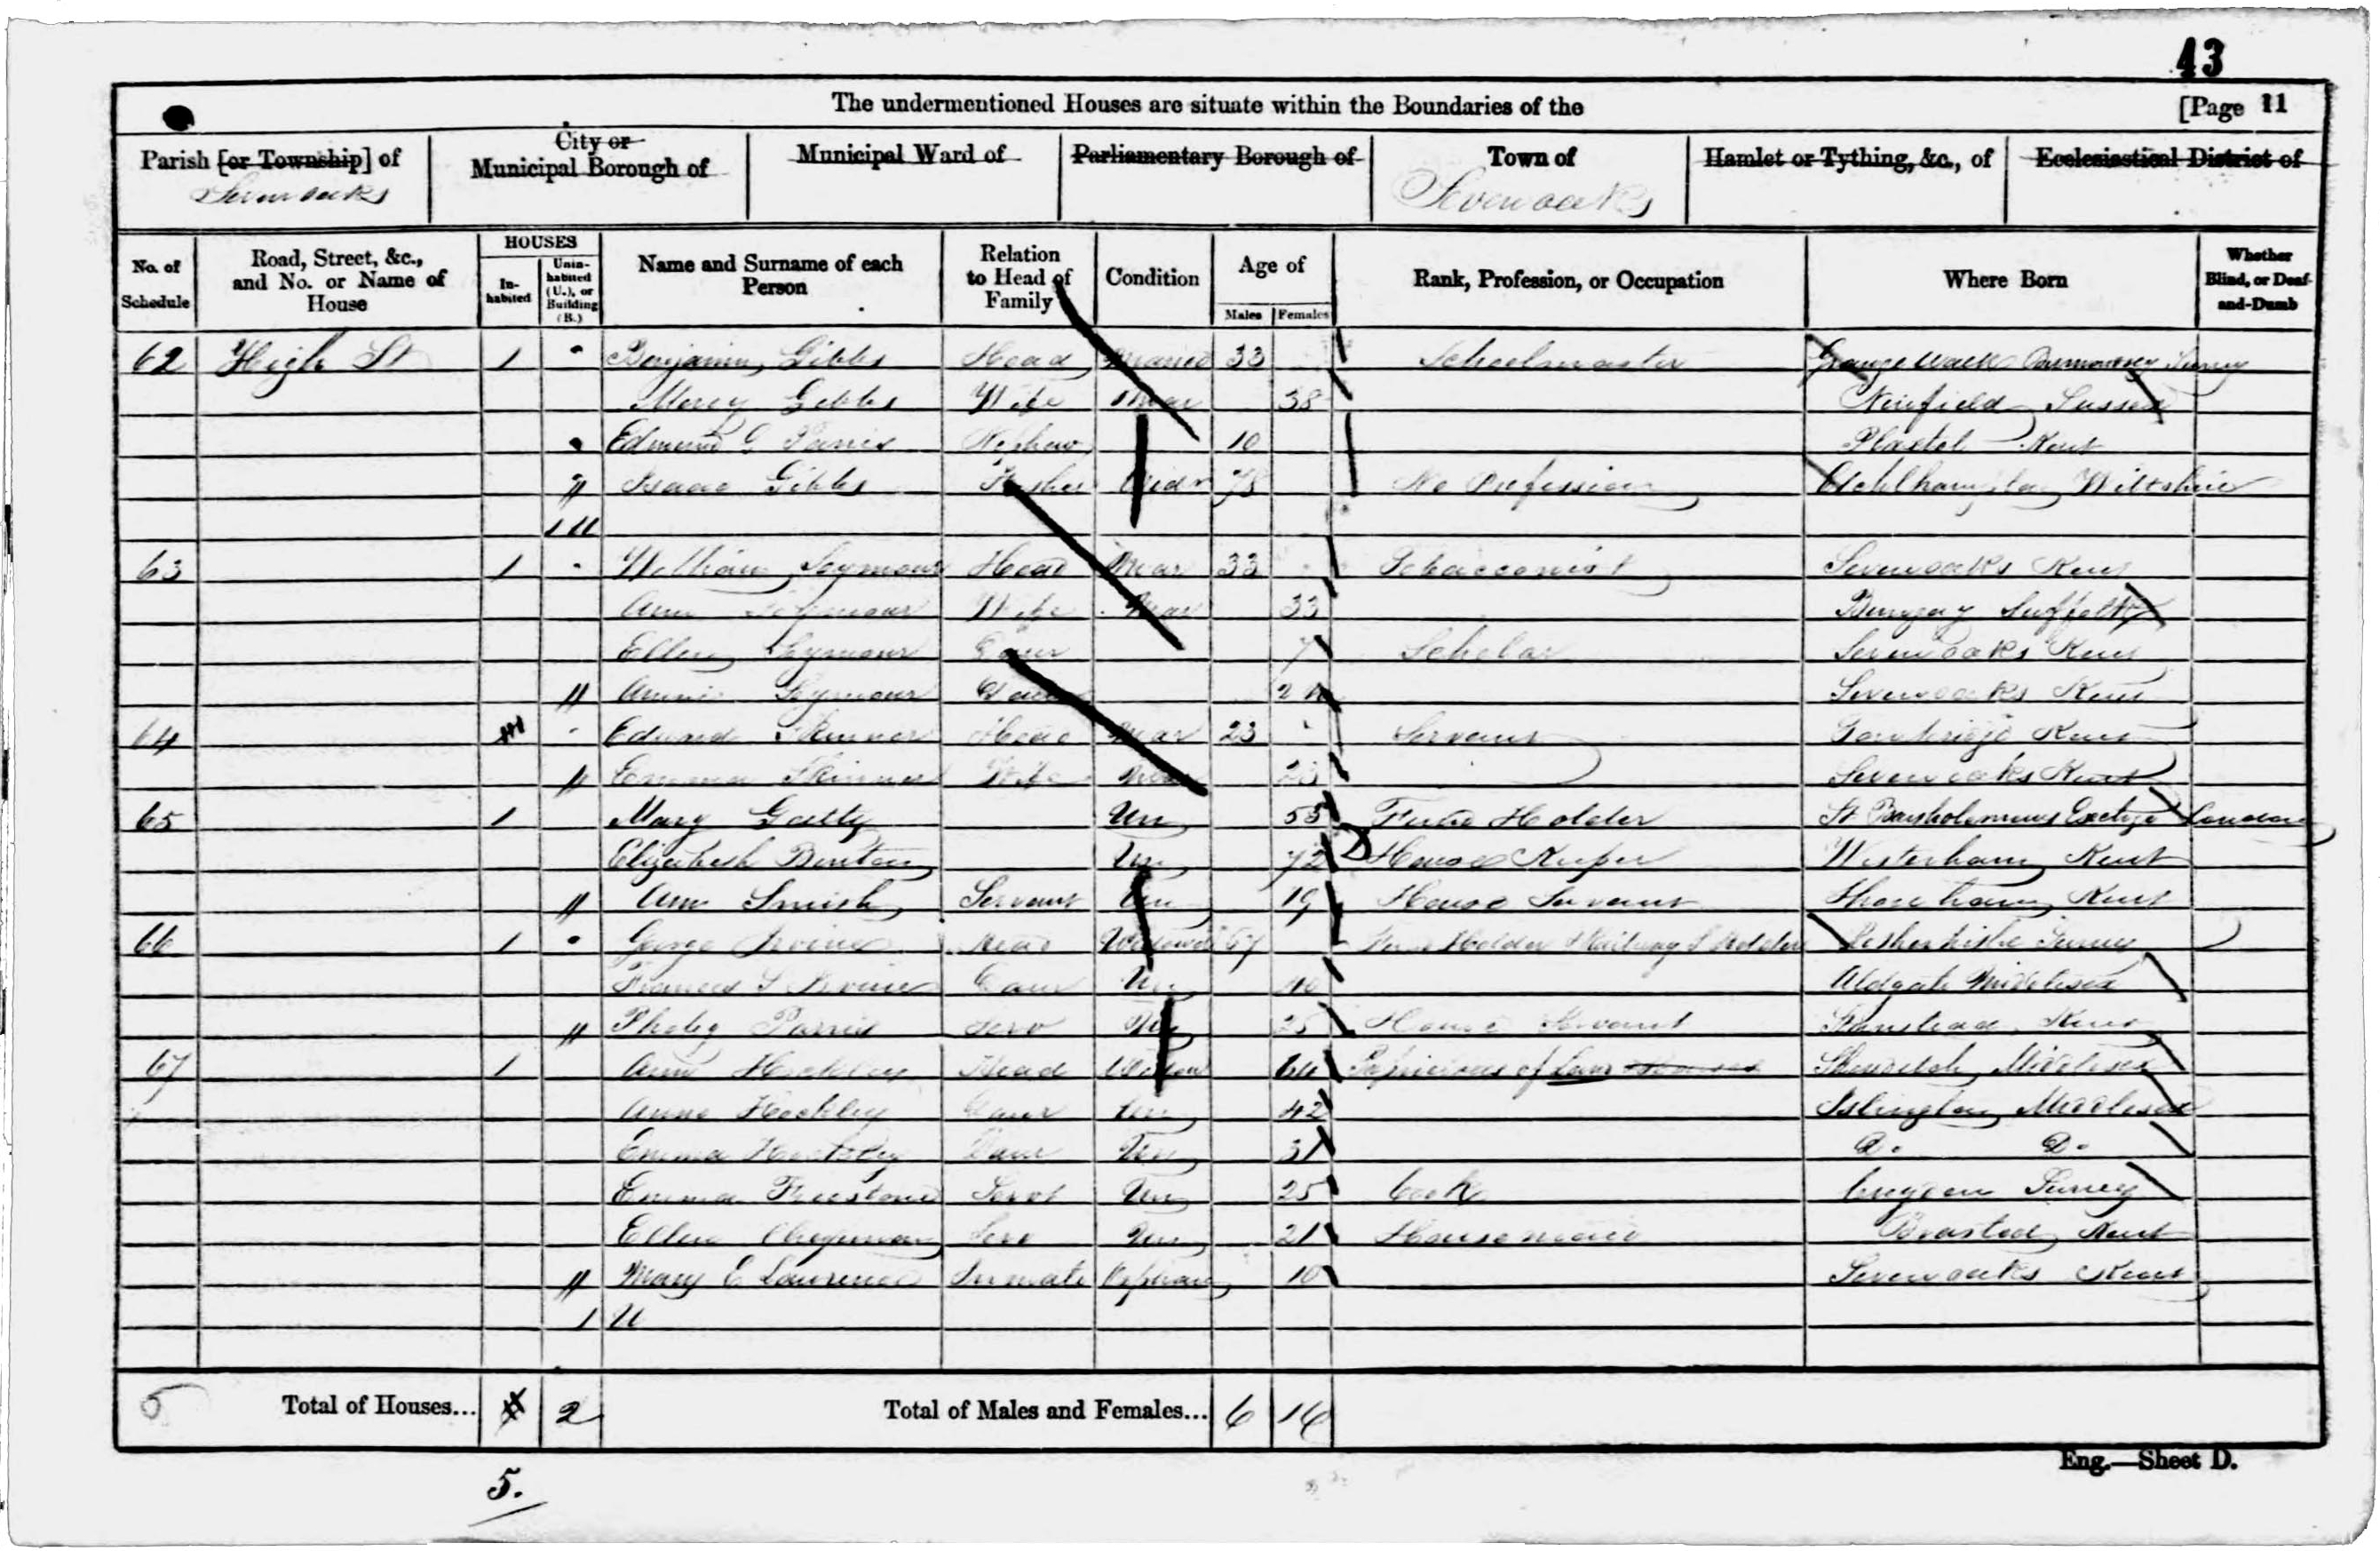 43
The undermentioned Houses are situate within the Boundaries of the [Page 11
Parish [or Township] of Sevenoaks
City or Municipal Borough of
Municipal Ward of
Parliamentary Borough of
Town of Sevenoaks
Hamlet or Tything, &c., of
Ecclesiastical District of
No. of Schedule
Road, Street, &c., and No. or Name of House
HOUSES
In-habited
Unin-habited (U.), or Building (B.)
Name and Surname of each Person
Relation to Head of Family
Condition
Age of
Males Females
Rank, Profession, or Occupation
Where Born
Whether Blind, or Deaf-and-Dumb
62 High St 1 Benjamin Gibbs Head Married 33 Schoolmaster Grange Walk Surrey
Mercy Gibbs Wife Mar 38 Ninfield Sussex
Edmund G Parris Nephew 10 Plaxtol Kent
Isaac Gibbs Father Widr 78 No Profession Wiltshire
1 U
63 1 William Seymour Head Mar 33 Tobacconist Sevenoaks Kent
Ann Seymour Wife Mar 33 Bungay Suffolk
Ellen Seymour Daur 7 Scholar Sevenoaks Kent
Annie Seymour Daur 2 Sevenoaks Kent
64 Edward Skinner Head Mar 23 Servant Kent
Emma Skinner Wife Mar 23 Sevenoaks Kent
65 1 Mary Un 55 Fund Holder St Bartholomews London
Elizabeth Un 72 House Keeper Westerham Kent
Ann Smith Servant Un 19 House Servant Shoreham Kent
66 1 George Irvine Head Widower 67 Fund Holder & Railway S Holder Rotherhithe Surrey
Frances S Irvine Daur Un 40 Aldgate Middlesex
Phoeby Parris Serv Un 25 House Servant Stanstead Kent
67 1 Ann Hockley Head Widow 64 Proprietress of Land Houses Shoreditch Middlesex
Anne Hockley Daur Un 42 Islington Middlesex
Emma Hockley Daur Un 31 Do Do
Emma Freestone Servt Un 25 Cook Croydon Surrey
Ellen Chapman Serv Un 21 Housemaid Brasted Kent
Mary E Lawrence Inmate Orphan 10 Sevenoaks Kent
1 U
5 Total of Houses... 2 Total of Males and Females... 6 16
Eng.—Sheet D.
5.